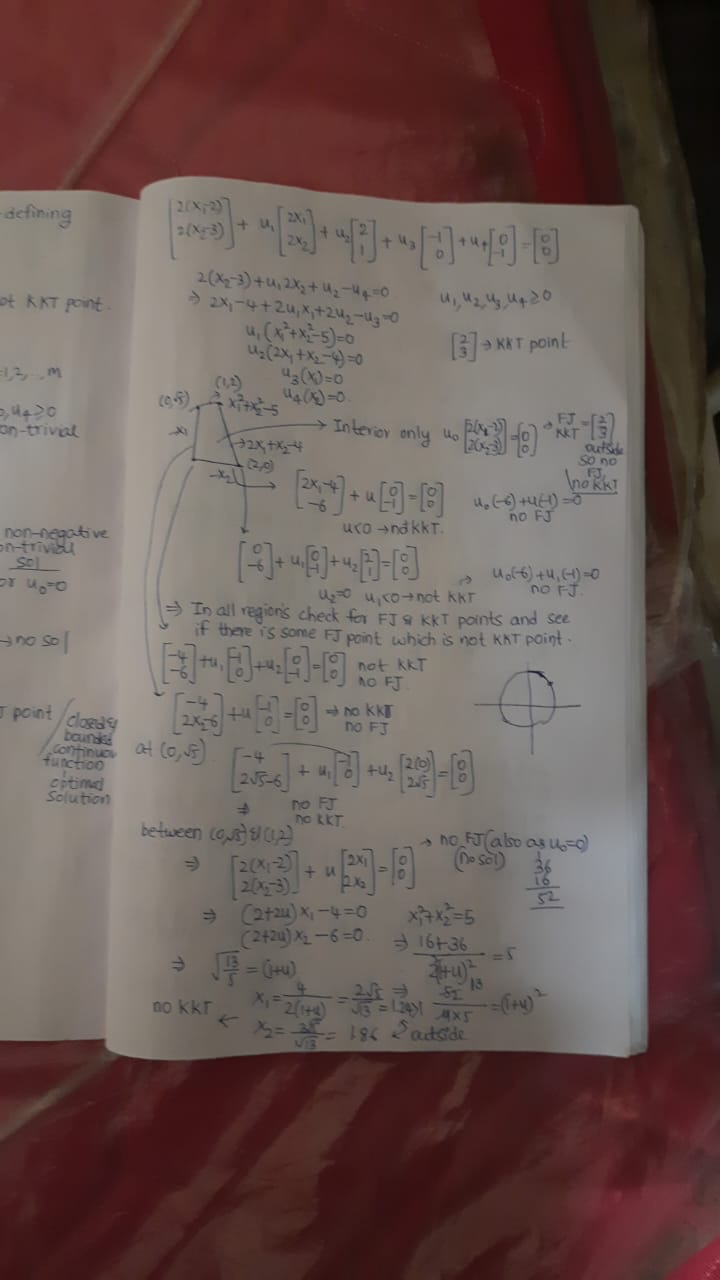 -defining
ot KKT point.
=1,2,...,m
u₄≥0
on-trivial
non-negative
on-trivial
sol
or u₀=0
→no sol
J point / closed &
bounded
continuous
function
↓
optimal
solution
[2(x₁-2) 2(x₂-3)] + u₁[2x₁ 2x₂] + u₂[2 1] + u₃[-1 0] + u₄[0 -1] = [0 0]
2(x₂-3)+u₁2x₂+u₂-u₄=0
⇒ 2x₁-4+2u₁x₁+2u₂-u₃=0
u₁,u₂,u₃,u₄≥0
u₁(x₁²+x₂²-5)=0
u₂(2x₁+x₂-4)=0
u₃(x₁)=0
u₄(x₂)=0.
[2 3] → KKT point
(1,2)
(0,√5)
x₁²+x₂²-5
-x₁
→2x₁+x₂-4
(2,0)
-x₂
→ Interior only u₀[2(x₁-2) 2(x₂-3)]=[0 0] → FJ KKT = [2 3]
outside
so no
FJ,
no KKT
[2x₁-4 -6] + u[0 -1] = [0 0]
u₀(-6)+u(-1)=0
no FJ
u<0 → not KKT.
[0 -6] + u₁[0 -1] + u₂[2 1] = [0 0]
u₂=0 u₁<0 → not KKT
→ u₀(-6)+u₁(-1)=0
no FJ.
⇒ In all region's check for FJ & KKT points and see
if there is some FJ point which is not KKT point.
[-4 -6] + u₁[-1 0] + u₂[0 -1] = [0 0] not KKT
no FJ.
[-4 2x₂-6] + u[-1 0] = [0 0] ⇒ no KKT
no FJ
at (0,√5) [-4 2√5-6] + u₁[-1 0] + u₂[2(0) 2√5] = [0 0]
⇒ no FJ
no KKT.
between (0,√5) & (1,2)
→ no FJ (also as u₀=0)
(no sol)
⇒ [2(x₁-2) 2(x₂-3)] + u[2x₁ 2x₂] = [0 0]
36
16
52
⇒ (2+2u)x₁-4=0 x₁²+x₂²=5
(2+2u)x₂-6=0. ⇒ 16+36 / (1+u)² = 5
⇒ √13/5 = (1+u)
52 / 4×5 = (1+u)²
13
x₁ = 4/2(1+u) = 2√5/√13 = 1.24>1
no KKT ←
x₂ = 3√5/√13 = 1.86 outside